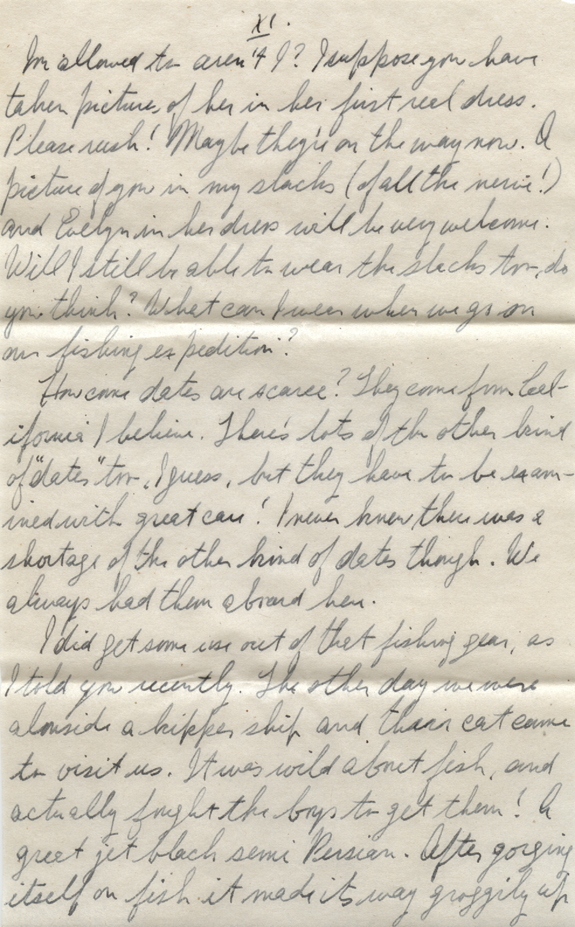 XI.
I'm allowed to aren't I? I suppose you have
taken pictures of her in her first real dress.
Please rush! Maybe they're on the way now. A
picture of you in my slacks (of all the nerve!)
and Evelyn in her dress will be very welcome.
Will I still be able to wear the slacks too, do
you think? What can I wear when we go on
our fishing expedition?
How come dates are scarce? They come from Cal-
ifornia I believe. There's lots of the other kind
of "dates" too, I guess, but they have to be exam-
ined with great care! I never knew there was a
shortage of the other kind of dates though. We
always had them aboard here.
I did get some use out of that fishing gear, as
I told you recently. The other day we were
alonside a kipper ship and their cat came
to visit us. It was wild about fish, and
actually fought the boys to get them! A
great jet black semi Persian. After gorging
itself on fish it made its way groggily up